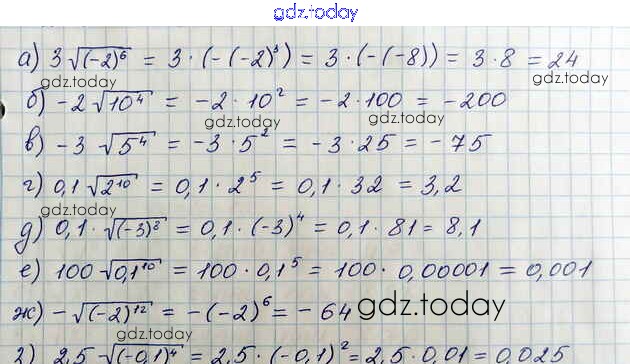 gdz.today
а) 3 √(-2)⁶ = 3 · (-(-2)³) = 3 · (-(-8)) = 3 · 8 = 24
gdz.today gdz.today
б) -2 √10⁴ = -2 · 10² = -2 · 100 = -200
gdz.today gdz.today
в) -3 √5⁴ = -3 · 5² = -3 · 25 = -75
г) 0,1 √2¹⁰ = 0,1 · 2⁵ = 0,1 · 32 = 3,2
gdz.today
д) 0,1 · √(-3)⁸ = 0,1 · (-3)⁴ = 0,1 · 81 = 8,1
е) 100 √0,1¹⁰ = 100 · 0,1⁵ = 100 · 0,00001 = 0,001
ж) -√(-2)¹² = -(-2)⁶ = -64
gdz.today
gdz.today
з) 2,5 √(-0,1)⁴ = 2,5 · (-0,1)² = 2,5 · 0,01 = 0,025